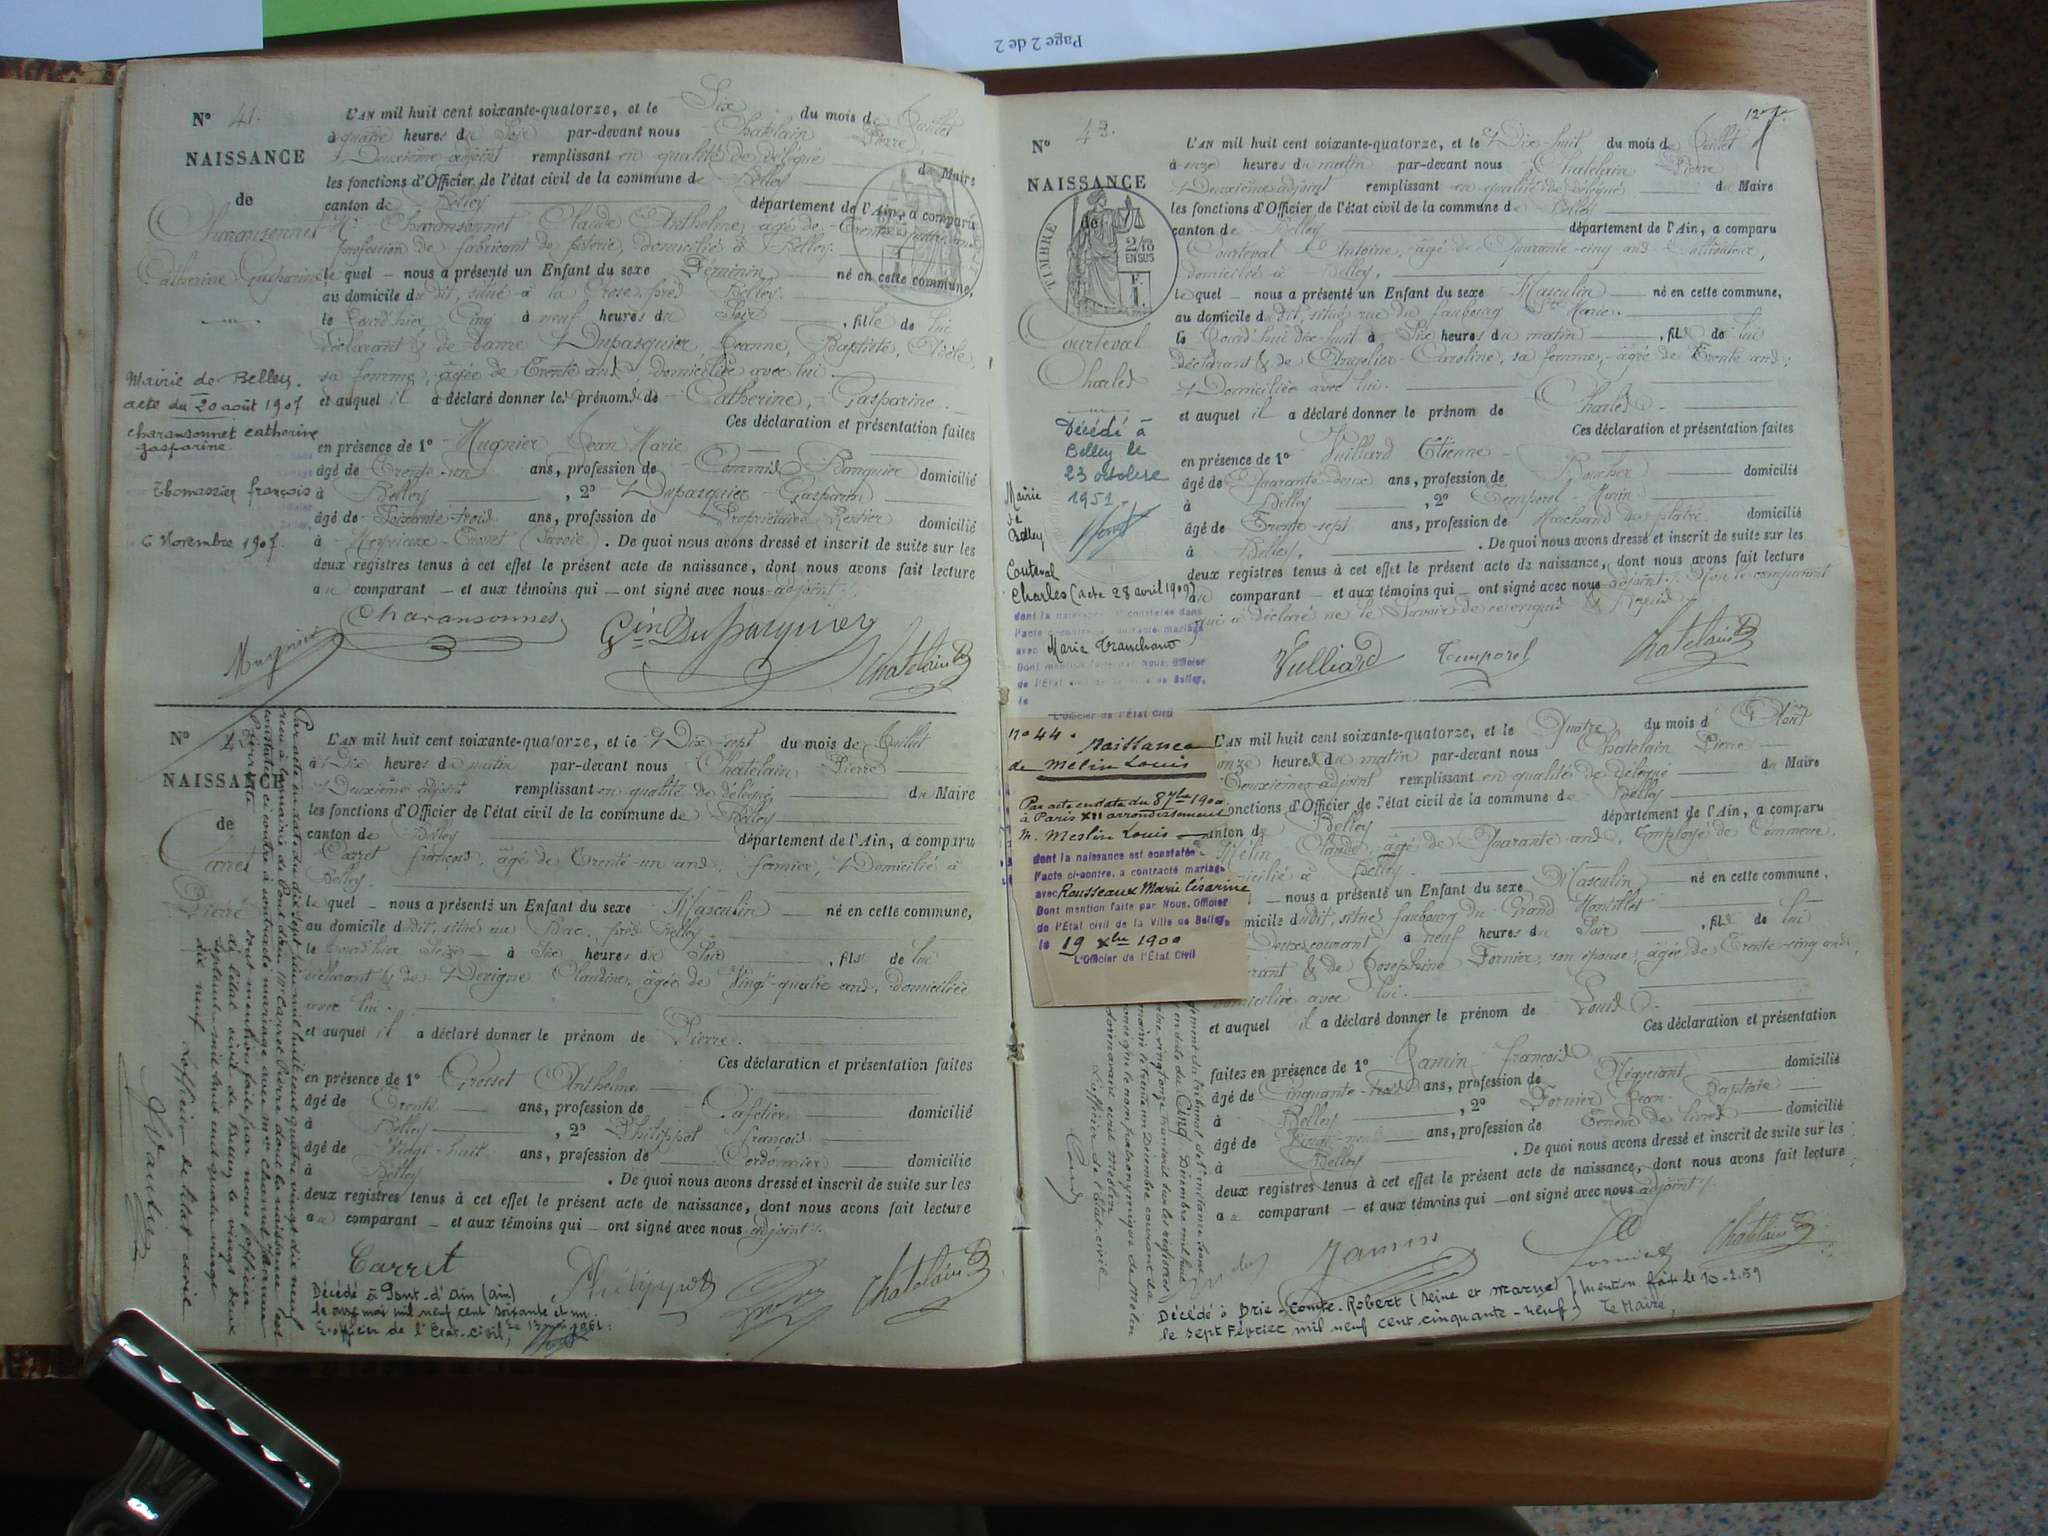 Page 2 de 2
N° 41.
NAISSANCE
de
Charansonnet
Catherine Gasparine
Mairie de Belley.
acte du 20 août 1907
charansonnet catherine
gasparine
Thomassier françois
6 Novembre 1907.
L'AN mil huit cent soixante-quatorze, et le Six du mois de Juillet
à quatre heures du Soir par-devant nous Chatelain Pierre,
Deuxième adjoint remplissant en qualité de délégué du Maire
les fonctions d'Officier de l'état civil de la commune de Belley
canton de Belley département de l'Ain, a comparu
Mr Charansonnet Claude Anthelme, âgé de Trente quatre ans
profession de fabricant de poterie, domicilié à Belley.
le quel nous a présenté un Enfant du sexe Féminin né en cette commune,
au domicile du dit, situé à la Croze près Belley.
le jourd'hier Cinq à neuf heures du Soir, fille de lui
déclarant & de dame Dupasquier, Jeanne, Baptiste, Adèle,
sa femme, âgée de Trente ans domiciliée avec lui
et auquel il a déclaré donner les prénoms de Catherine, Gasparine.
Ces déclaration et présentation faites
en présence de 1° Mugnier Jean Marie
âgé de Trente-un ans, profession de Commis Banquier domicilié
à Belley, 2° Dupasquier Gasparin
âgé de Soixante-trois ans, profession de Propriétaire Rentier domicilié
à Meyrieux-Trouet (Savoie). De quoi nous avons dressé et inscrit de suite sur les
deux registres tenus à cet effet le présent acte de naissance, dont nous avons fait lecture
au comparant et aux témoins qui ont signé avec nous adjoint.
Mugnier Charansonnet Gin Dupasquier Chatelain
N°
NAISSANCE
de
Carret
Pierre
L'AN mil huit cent soixante-quatorze, et le Dix-sept du mois de Juillet
à Dix heures du matin par-devant nous Chatelain Pierre
Deuxième adjoint remplissant en qualité de délégué, du Maire
les fonctions d'Officier de l'état civil de la commune de Belley
canton de Belley département de l'Ain, a comparu
Carret françois, âgé de Trente-un ans, fermier, Domicilié à
Belley.
le quel nous a présenté un Enfant du sexe Masculin né en cette commune,
au domicile du dit, situé au Bac, près Belley
le jourd'hier Seize à Six heures du Soir, fils de lui
déclarant & de Devigne Claudine, âgée de Vingt-quatre ans, domiciliée
avec lui.
et auquel il a déclaré donner le prénom de Pierre.
Ces déclaration et présentation faites
en présence de 1° Grosset Anthelme
âgé de Trente ans, profession de Cafetier domicilié
à Belley, 2° Philippot françois
âgé de Vingt-huit ans, profession de Cordonnier domicilié
à Belley. De quoi nous avons dressé et inscrit de suite sur les
deux registres tenus à cet effet le présent acte de naissance, dont nous avons fait lecture
au comparant et aux témoins qui ont signé avec nous adjoint.
Carret Philippot Chatelain
Décédé à Pont-d'Ain (ain)
le onze mai mil neuf cent soixante et un.
L'officier de l'Etat-civil, le 13 mai 1961.
Par acte en date du dix sept juin mil huit cent quatre vingt dix neuf
reçu à la mairie de Pont d'ain, Mr Carret Pierre dont la naissance est
constatée ci contre a contracté mariage avec Melle Charnut Jeanne
Pierrette dont mention faite par nous officier
de l'état civil de Belley le vingt deux
septembre mil huit cent quatre vingt
dix neuf L'officier de l'état civil
12
N° 43.
NAISSANCE
de
TIMBRE
2/10
EN SUS
F.
1.
Courteval
Charles
Décédé à
Belley le
23 octobre
1951
Mairie
de
Belley
Courteval
Charles (acte 28 avril 1909)
dont la naissance est constatée dans
l'acte contracté mariage
avec Marie Tranchand
Dont mention faite par Nous, Officier
de l'Etat civil de la Ville de Belley,
le
L'Officier de l'Etat Civil
L'AN mil huit cent soixante-quatorze, et le Dix-huit du mois de Juillet
à onze heures du matin par-devant nous Chatelain Pierre
Deuxième adjoint remplissant en qualité de délégué du Maire
les fonctions d'Officier de l'état civil de la commune de Belley
canton de Belley département de l'Ain, a comparu
Courteval Antoine, âgé de Quarante-cinq ans Cultivateur,
domicilié à Belley,
le quel nous a présenté un Enfant du sexe Masculin né en cette commune,
au domicile du dit, situé rue du faubourg Ste Marie.
le Jourd'hui dix-huit à Six heures du matin, fils de lui
déclarant & de Caroline, sa femme, âgée de Trente ans;
Domiciliée avec lui.
et auquel il a déclaré donner le prénom de Charles.
Ces déclaration et présentation faites
en présence de 1° Vulliard Etienne
âgé de Quarante-deux ans, profession de Boucher domicilié
à Belley, 2° Temporel Marin
âgé de Trente-sept ans, profession de Marchand de plâtre domicilié
à Belley,. De quoi nous avons dressé et inscrit de suite sur les
deux registres tenus à cet effet le présent acte de naissance, dont nous avons fait lecture
au comparant et aux témoins qui ont signé avec nous adjoint. Non le comparant
qui a déclaré ne le Savoir de ce enquis & Requis
Vulliard Temporel Chatelain
n° 44.
Naissance
de Mélin Louis
Par acte en date du 8 7bre 1900
à Paris XII arrondissement
M. Meslin Louis
dont la naissance est constatée
l'acte ci-contre, a contracté mariage
avec Rousseaux Marie Césarine
Dont mention faite par Nous, Officier
de l'Etat civil de la Ville de Belley,
le 19 Xbre 1900
L'Officier de l'Etat Civil
L'AN mil huit cent soixante-quatorze, et le Quatre du mois d' Août
onze heures du matin par-devant nous Chatelain Pierre
Deuxième adjoint remplissant en qualité de délégué du Maire
fonctions d'Officier de l'état civil de la commune de Belley
canton de Belley département de l'Ain, a comparu
Mélin Claude, âgé de Quarante ans, Employé de Commerce,
domicilié à Belley.
nous a présenté un Enfant du sexe Masculin né en cette commune,
domicile du dit, situé faubourg du Grand
Deux courant à neuf heures du Soir, fils de lui
déclarant & de Josephine Fornier, son épouse, âgée de Trente-cinq ans
domiciliée avec lui.
et auquel il a déclaré donner le prénom de Louis.
Ces déclaration et présentation
faites en présence de 1° Jamin françois
âgé de Cinquante-trois ans, profession de Négociant domicilié
à Belley, 2° Fornier Jean-Baptiste
âgé de ans, profession de Teneur de livres domicilié
à Belley. De quoi nous avons dressé et inscrit de suite sur les
deux registres tenus à cet effet le présent acte de naissance, dont nous avons fait lecture
au comparant et aux témoins qui ont signé avec nous adjoint.
Jamin Fornier Chatelain
Décédé à Brie-Comte-Robert (Seine et Marne) mention faite le 10-2-59
le sept Février mil neuf cent cinquante-neuf Le Maire,